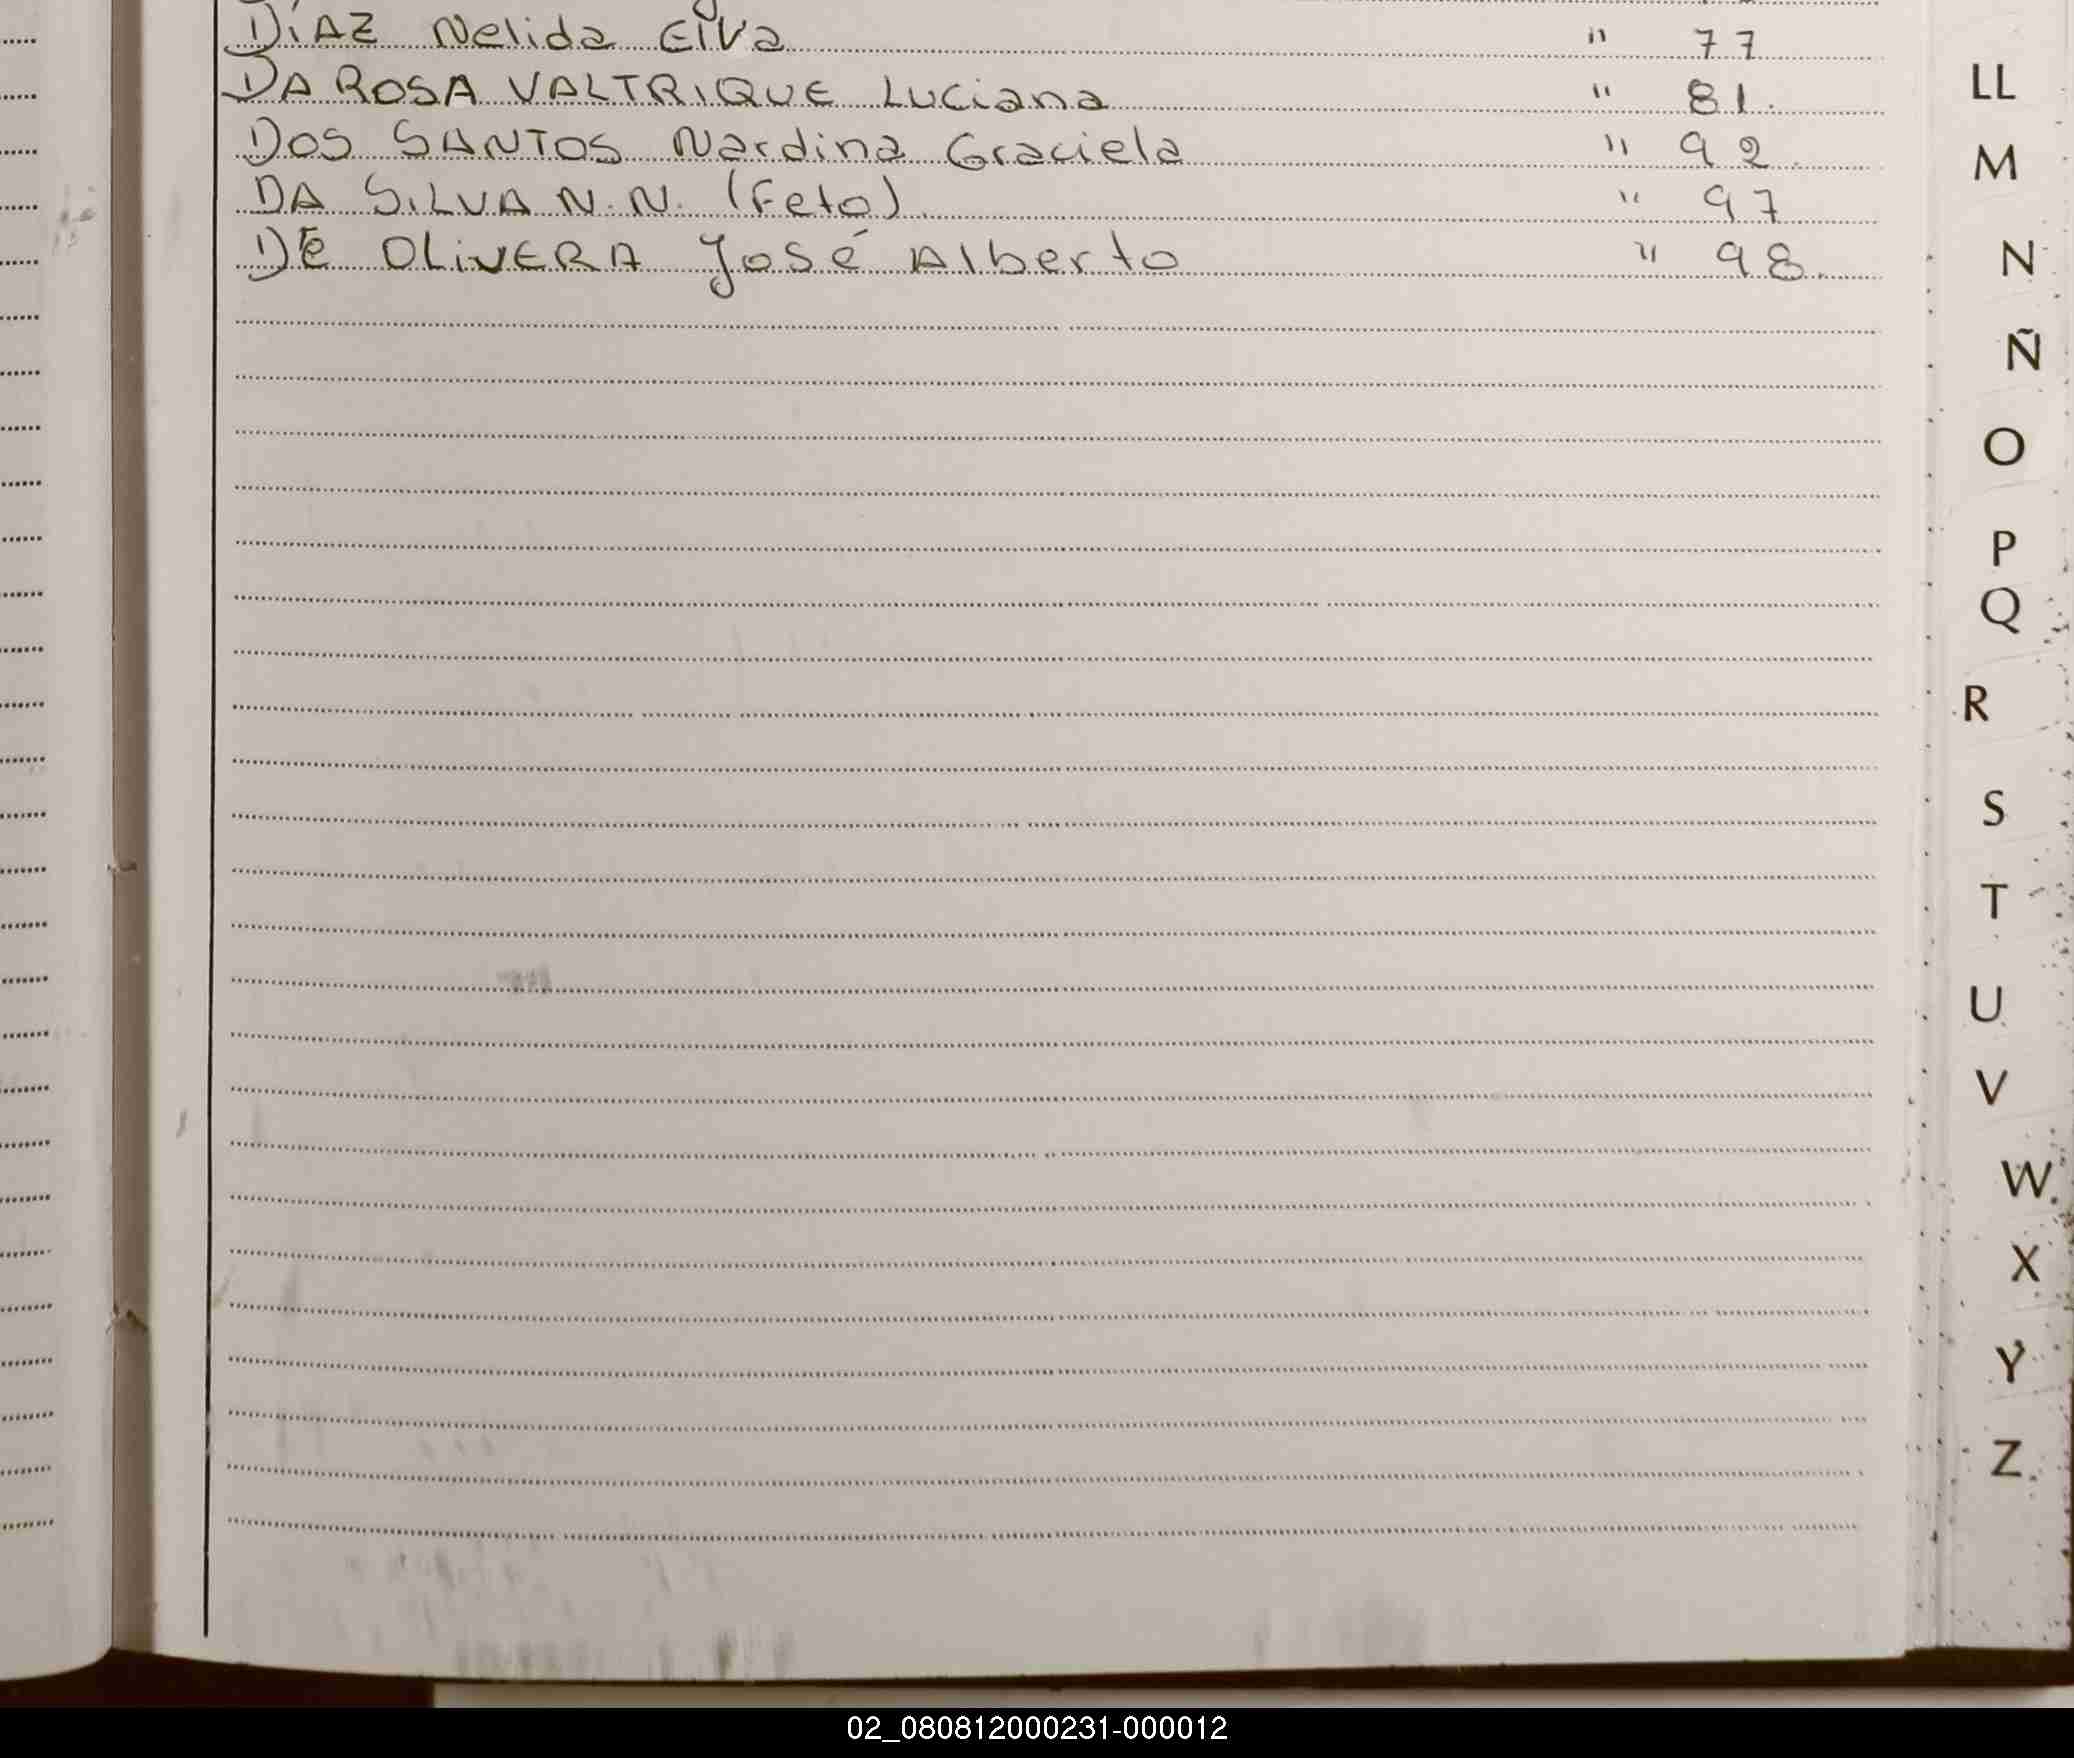 DÍAZ Nelida Elva " 77
DA ROSA VALTRIQUE Luciana " 81.
DOS SANTOS Nardina Graciela " 92.
DA SILVA N.N. (Feto) " 97
DE OLIVERA José Alberto " 98.
LL
M
N
Ñ
O
P
Q
R
S
T
U
V
W
X
Y
Z
02_080812000231-000012